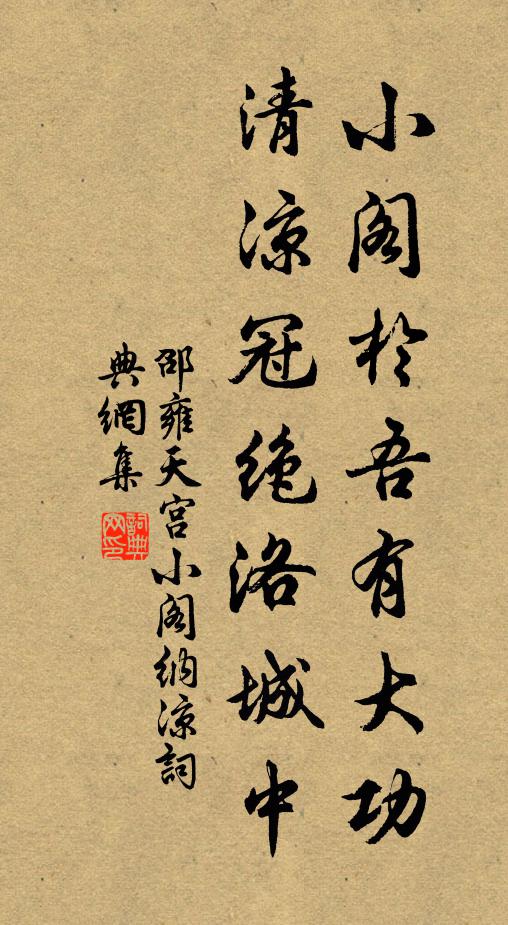 小阁於吾有大功
清凉冠绝洛城中
邵雍天宫小阁纳凉詞
典網集
詞典
网印